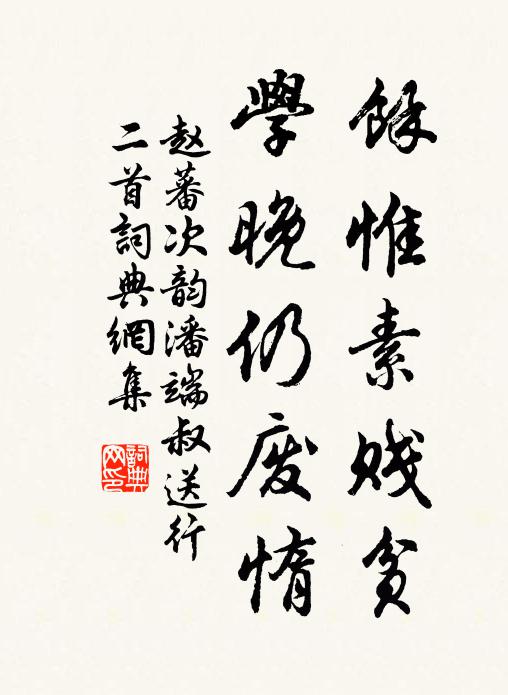 餘惟素賤貧
學晚仍廢惰
赵蕃次韵潘端叔送行
二首詞典網集
詞典网印